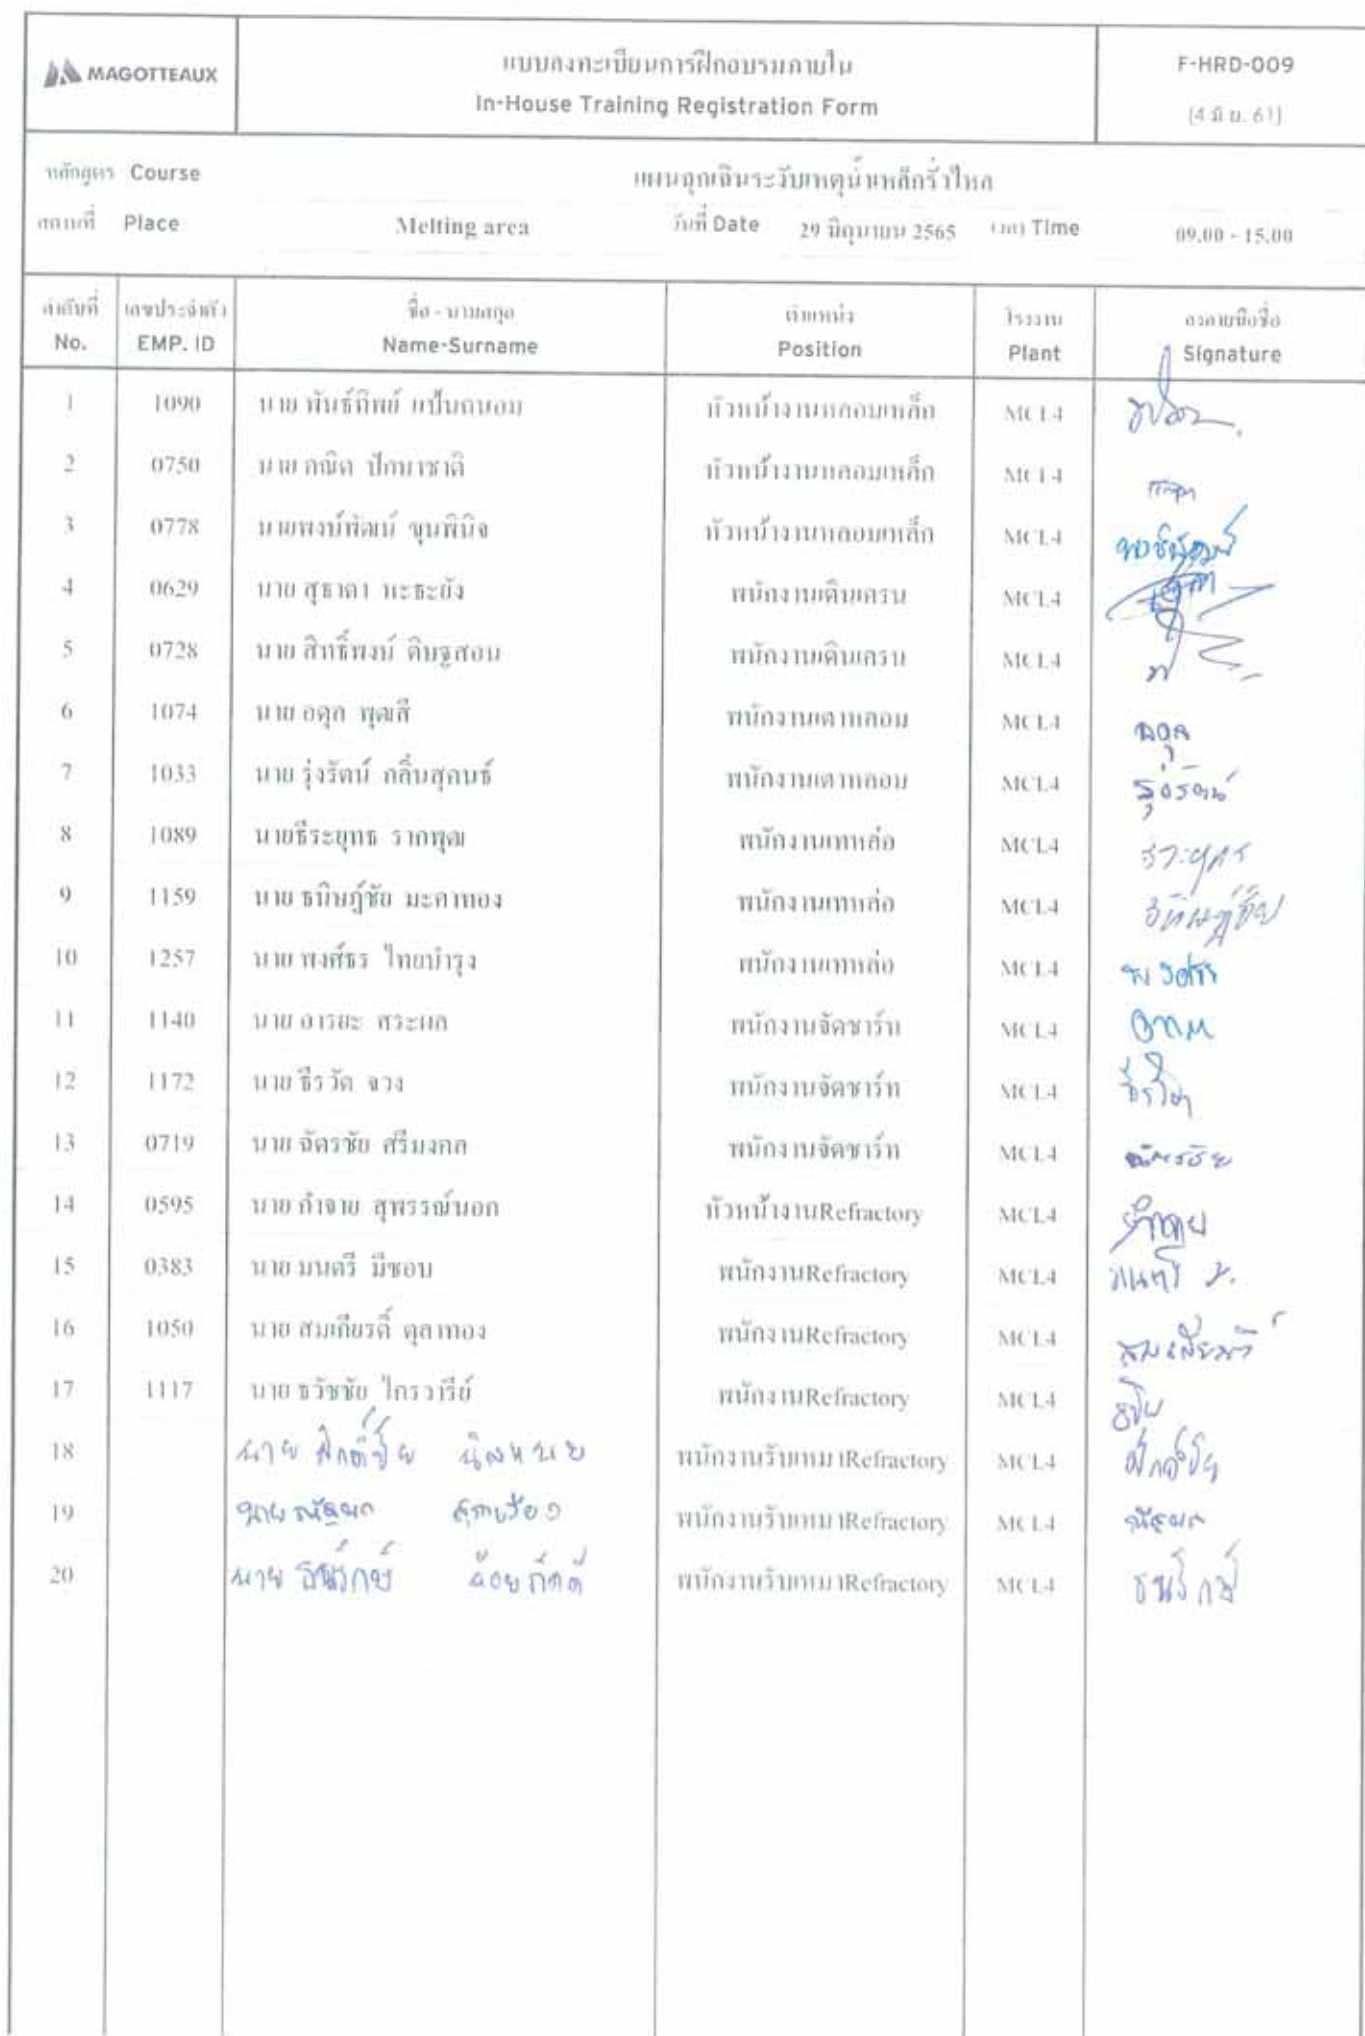 MAGOTTEAUX
แบบลงทะเบียนการฝึกอบรมภายใน
In-House Training Registration Form
F-HRD-009
(4 มิ.ย. 61)
หลักสูตร Course แผนฉุกเฉินระงับเหตุน้ำเหล็กรั่วไหล
สถานที่ Place Melting area วันที่ Date 29 มิถุนายน 2565 เวลา Time 09.00 - 15.00
ลำดับที่ เลขประจำตัว ชื่อ - นามสกุล ตำแหน่ง โรงงาน ลงลายมือชื่อ
No. EMP. ID Name-Surname Position Plant Signature
1 1090 นาย พันธ์ทิพย์ แป้นถนอม หัวหน้างานหลอมเหล็ก MCL4
2 0750 นาย คณิต ปักษาชาติ หัวหน้างานหลอมเหล็ก MCL4
3 0778 นายพงษ์พัฒน์ ขุนพินิจ หัวหน้างานหลอมเหล็ก MCL4
4 0629 นาย สุธาดา หะธะยัง พนักงานเดินเครน MCL4
5 0728 นาย สิทธิ์พงษ์ ดิษฐสอน พนักงานเดินเครน MCL4
6 1074 นาย อดุล พุฒสี พนักงานเตาหลอม MCL4 อดุล
7 1033 นาย รุ่งรัตน์ กลิ่นสุคนธ์ พนักงานเตาหลอม MCL4 รุ่งรัตน์
8 1089 นายธีระยุทธ รากพุฒ พนักงานเทหล่อ MCL4
9 1159 นาย ธนิษฎ์ชัย มะคาทอง พนักงานเทหล่อ MCL4
10 1257 นาย พงศ์ธร ไทยบำรุง พนักงานเทหล่อ MCL4
11 1140 นาย อารยะ สระแก พนักงานจัดชาร์ท MCL4
12 1172 นาย ธีรวัต จวง พนักงานจัดชาร์ท MCL4
13 0719 นาย ฉัตรชัย ศรีมงคล พนักงานจัดชาร์ท MCL4 ฉัตรชัย
14 0595 นาย กำจาย สุพรรณ์นอก หัวหน้างานRefractory MCL4 กำจาย
15 0383 นาย มนตรี มีชอบ พนักงานRefractory MCL4 มนตรี ม.
16 1050 นาย สมเกียรติ์ ตุลาทอง พนักงานRefractory MCL4 สมเกียรติ์
17 1117 นาย ธวัชชัย ไกรวารีย์ พนักงานRefractory MCL4
18 นาย ศักดิ์ชัย พนักงานรับเหมาRefractory MCL4 ศักดิ์ชัย
19 นาย ณัฐพล พนักงานรับเหมาRefractory MCL4 ณัฐพล
20 นาย ธนรักษ์ น้อยภักดี พนักงานรับเหมาRefractory MCL4 ธนรักษ์